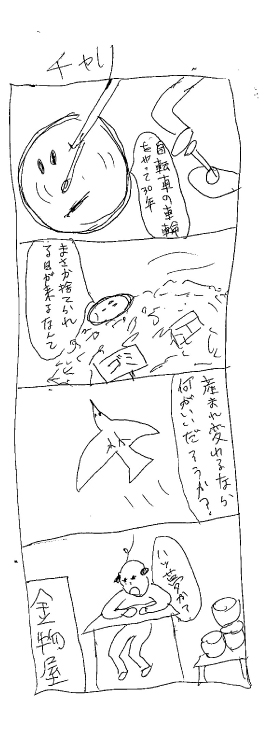 チャリ
自転車の車輪
をやって30年
まさか捨てられ
る日が来るなんて
ゴミ
産まれ変れるなら
何がいいだろうか?
ハッ夢か?
金物屋